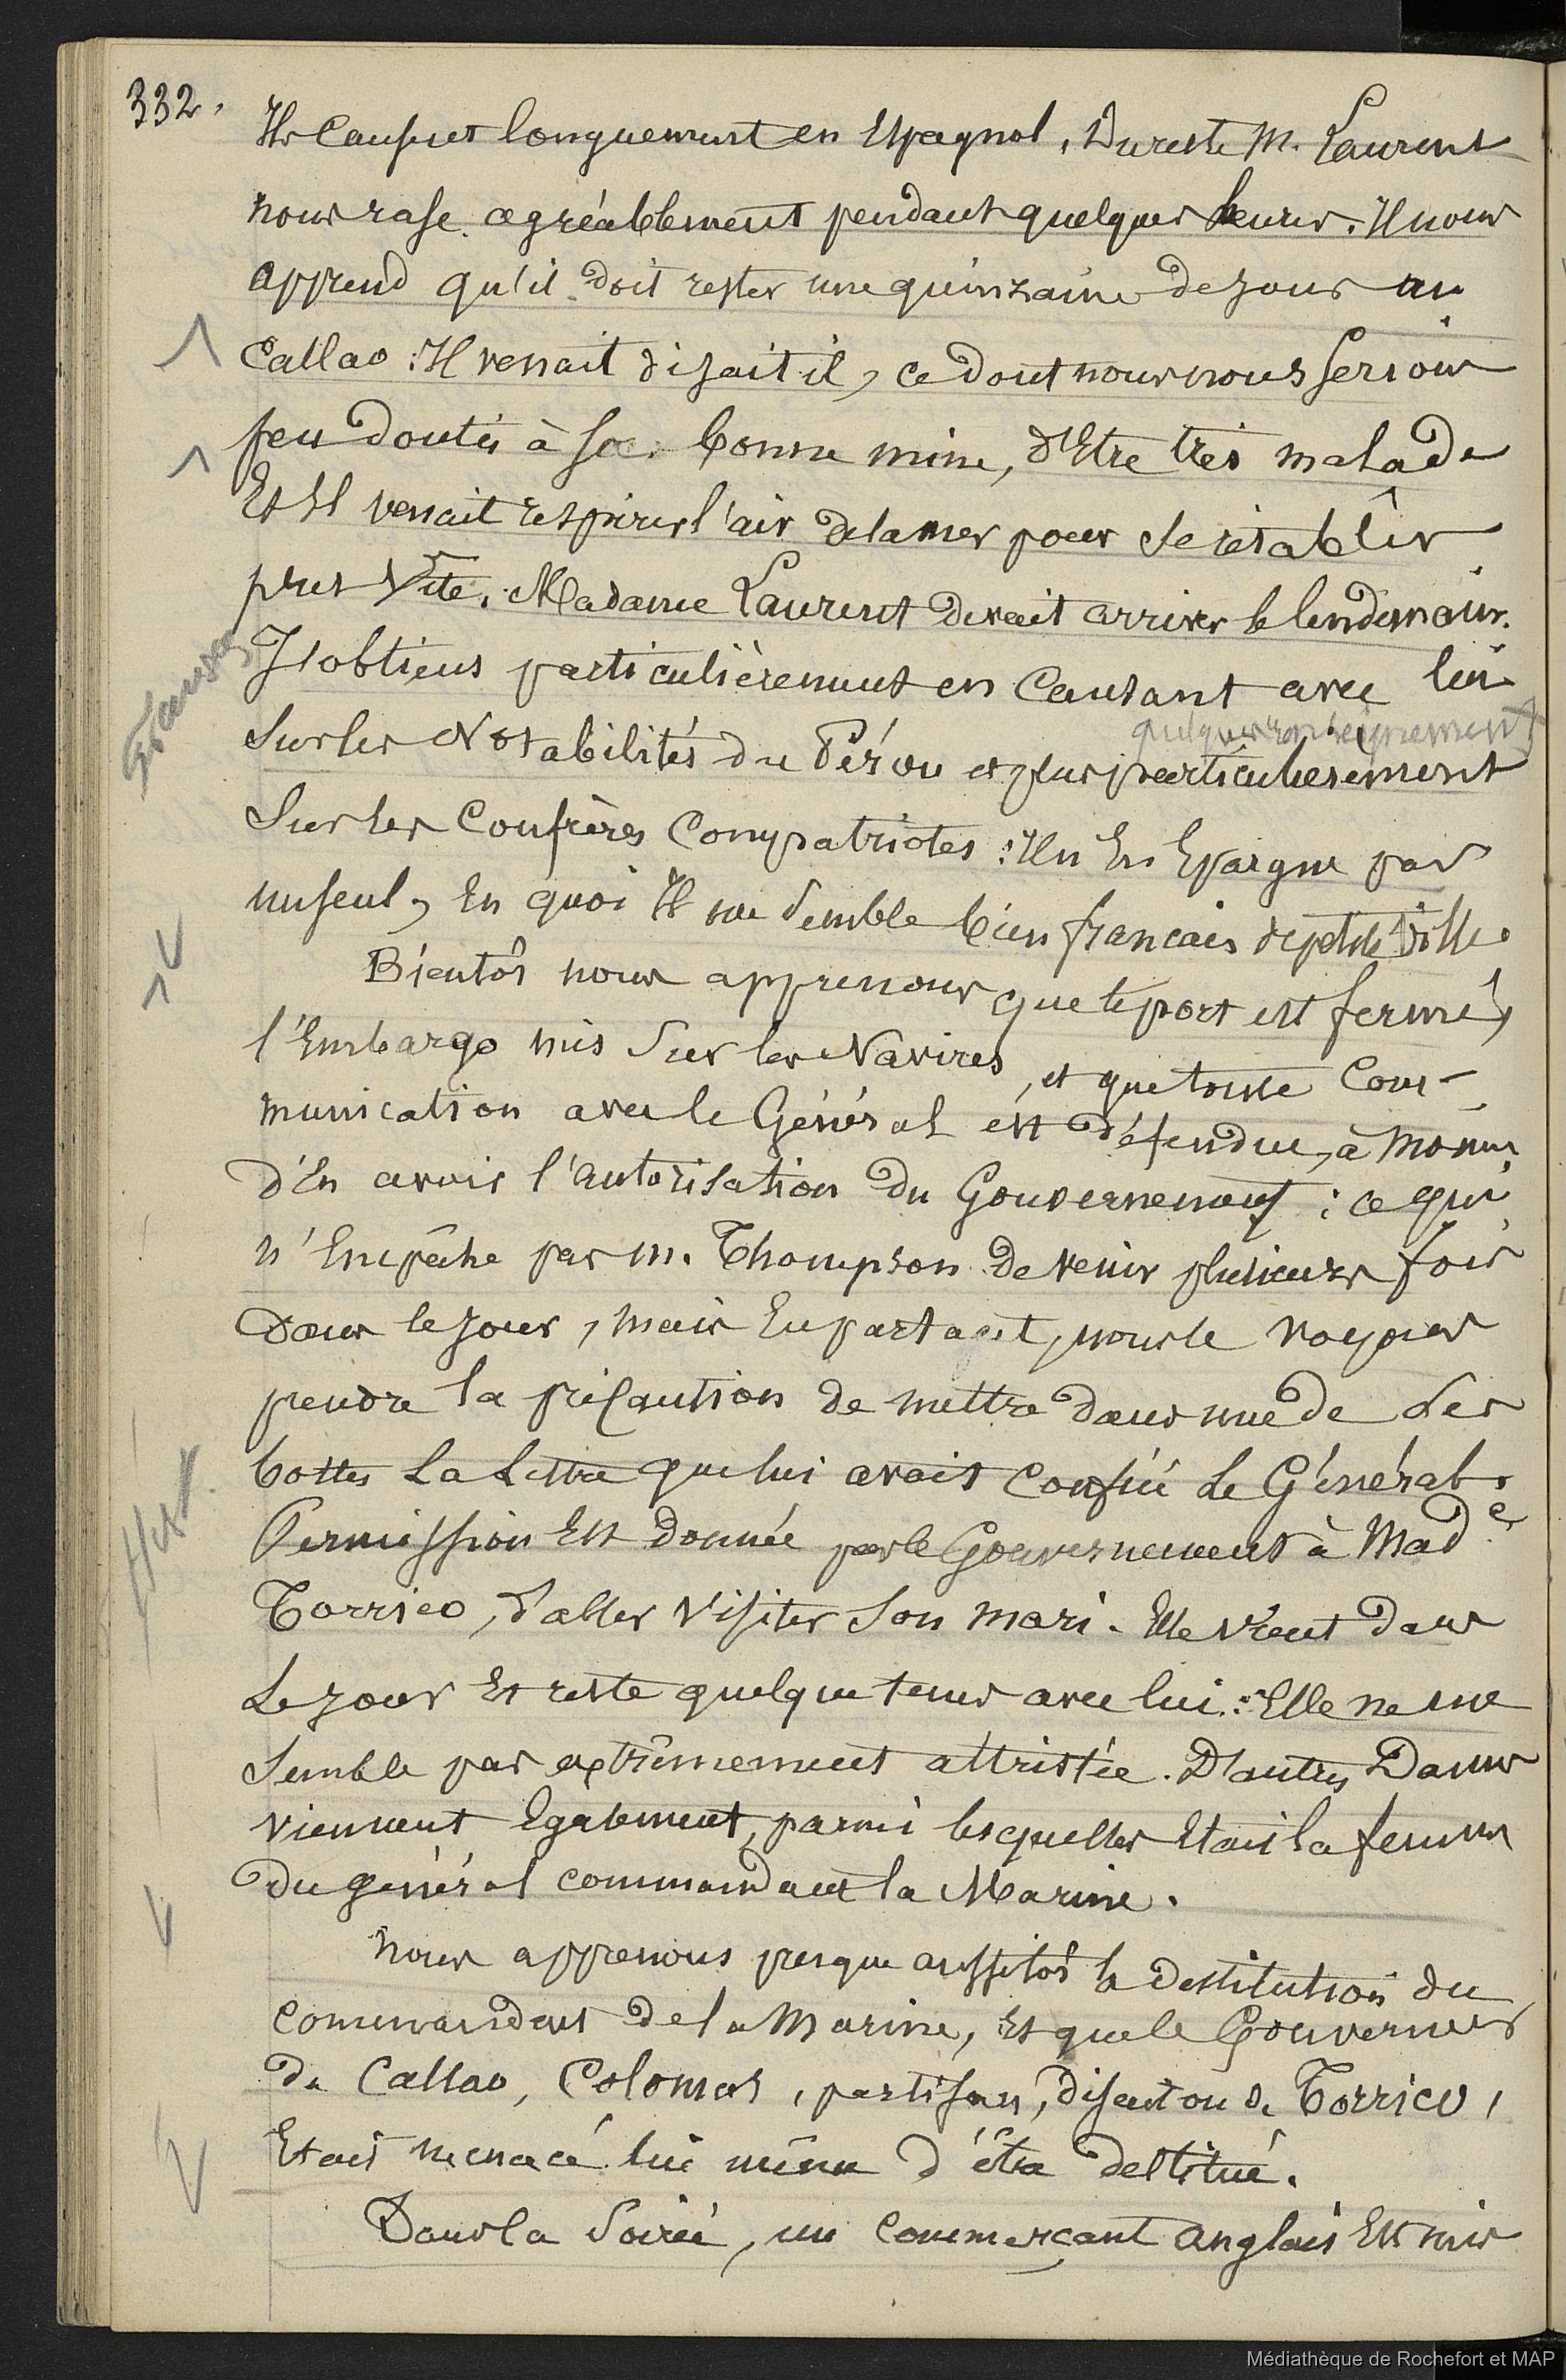 332.
Ils causent longuement en Espagnol. Dureste M. Laurent
nous rase agréablement pendant quelques heures. Il nous
apprend qu'il doit rester une quinzaine de jours au
Callao : Il venait disait il, ce dont nous nous serions
peu doutés à sa bonne mine, d'Etre très malade
Et Il venait respirer l'air de la mer pour se rétablir
plus Vite. Madame Laurent devait arriver le lendemain.
J'obtiens particulièrement en causant avec lui
quelques renseignements
Sur les Notabilités du Pérou et plus particulierement
Sur les Confrères Compatriotes : Il n'En Epargne pas
un seul, En quoi Il me semble bien francais de petite Ville.
Bientôt nous apprenons que le port est fermé,
l'Embargo mis sur les Navires, et que toute Com-
munication avec le Général est défendue, à moins
d'En avoir l'autorisation du Gouvernement : ce qui
n'Empêche pas M. Thompson de venir plusieurs fois
dans le jour, mais En partant, nous le voyons
prendre la précaution de mettre dans une de ses
bottes La Lettre que lui avait confiée Le Général.
Permission Est donnée par le Gouvernement à Made
Torrico, d'aller visiter Son mari. Elle vient dans
Le jour Et reste quelque tems avec lui : Elle ne me
Semble pas extrêmement attristée. D'autres Dames
viennent Egalement, parmi lesquelles Etait la femme
du général commandant la Marine.
Nous apprenons presque aussitôt la destitution du
commandant de la Marine, Et que le Gouverneur
du Callao, Colomas, partisan, disait on de Torrico,
Etait menacé lui même d'être destitué.
Dans la Soirée, un commerçant anglais Est mis
Médiathèque de Rochefort et MAP